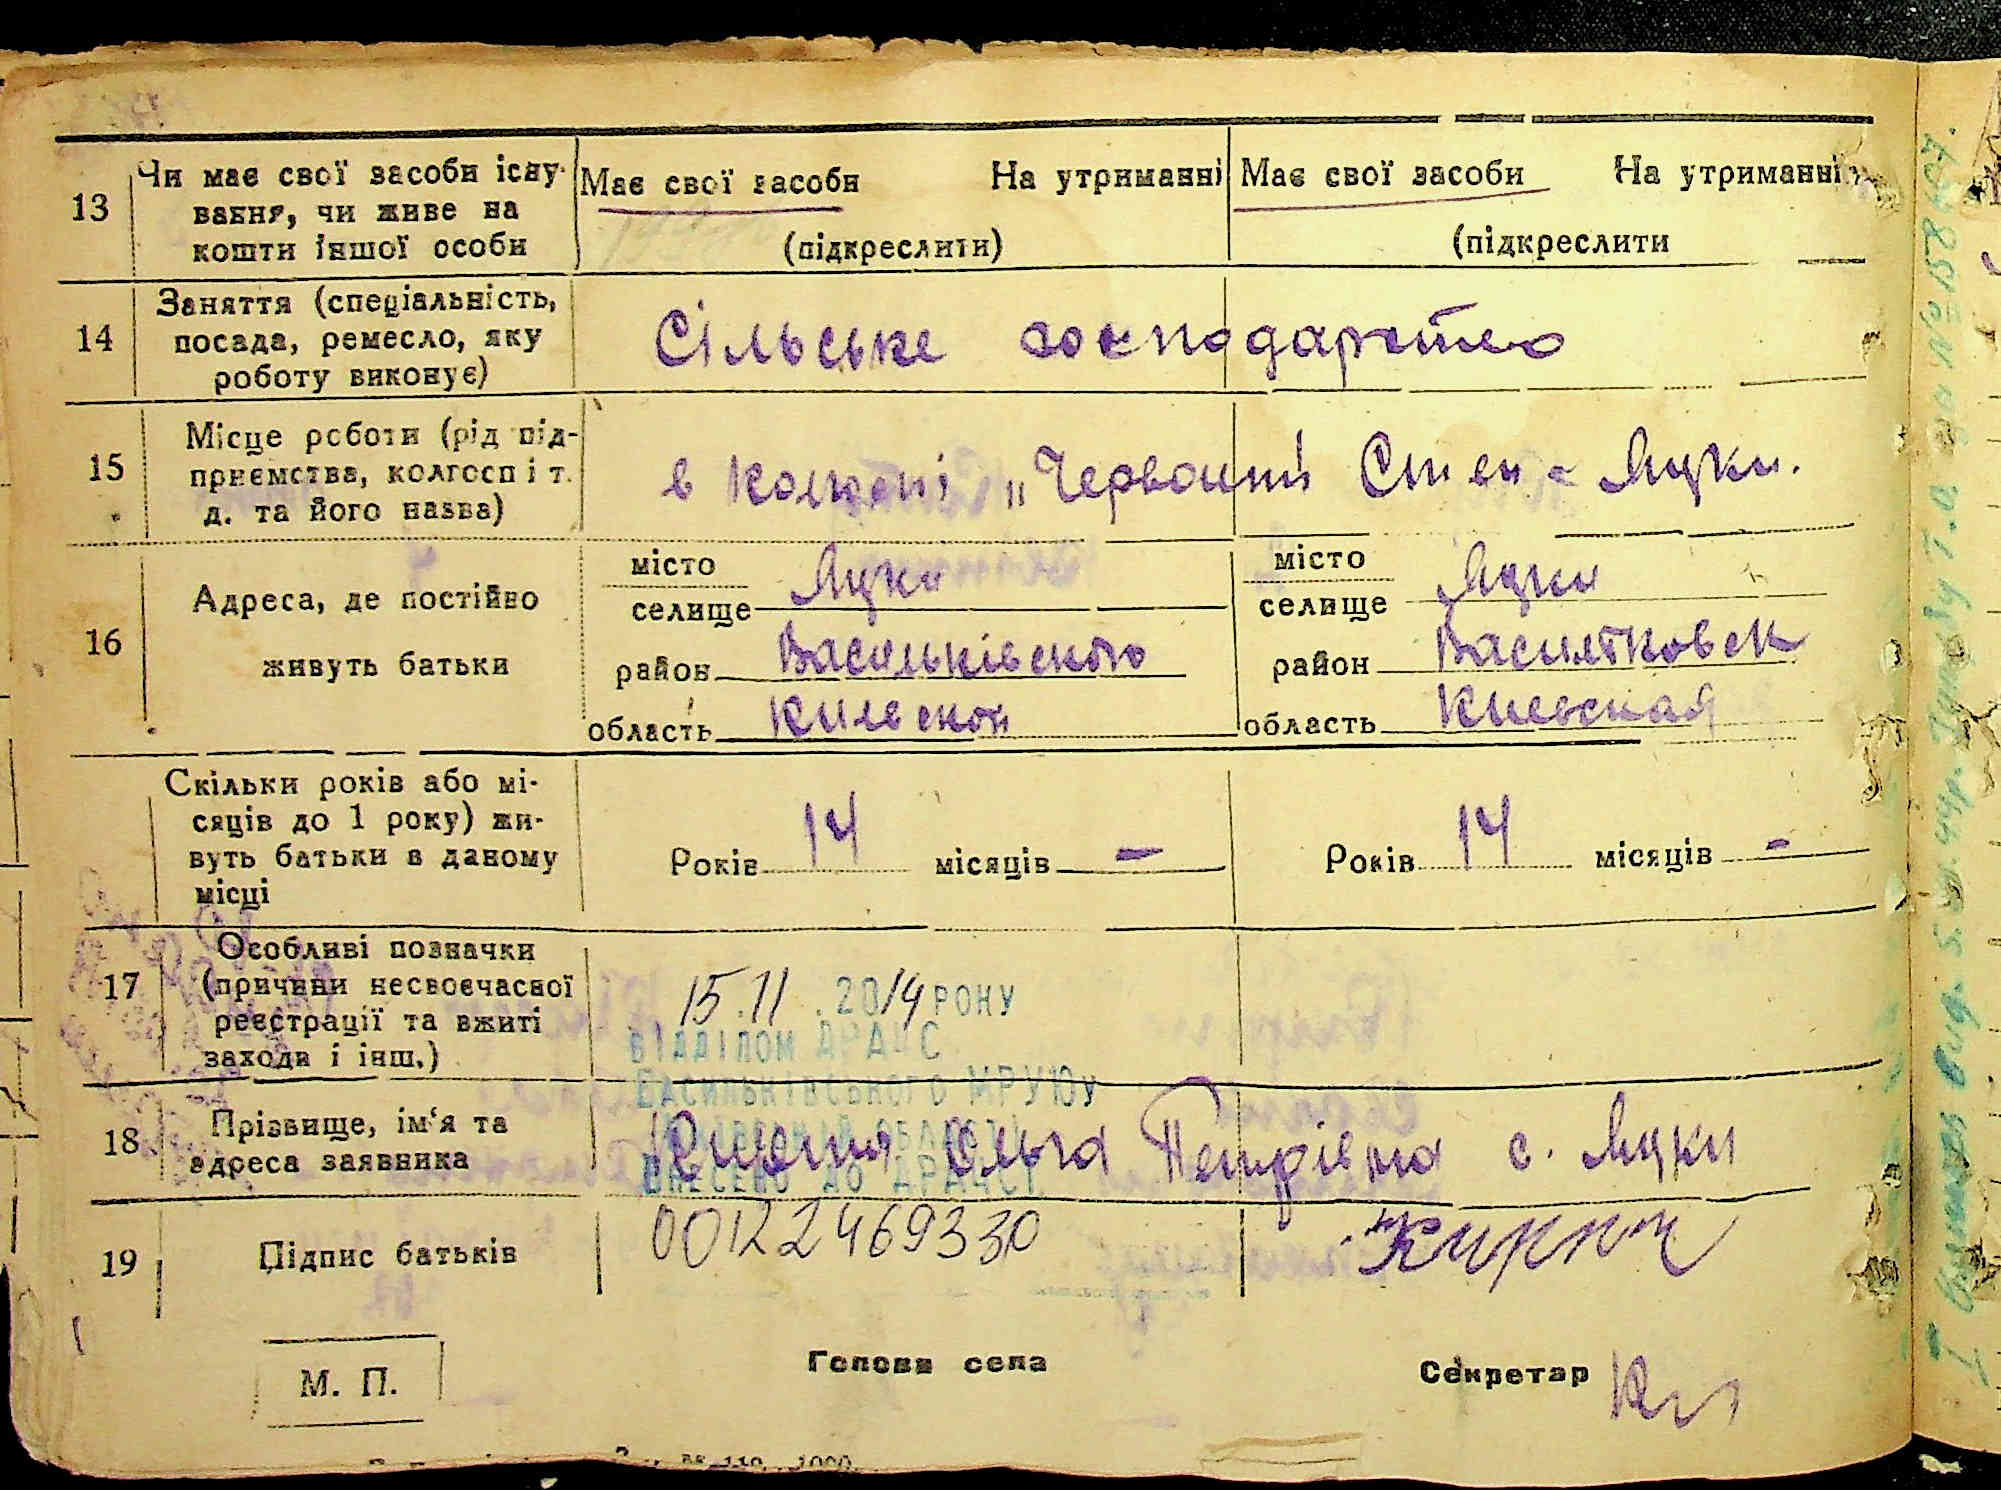 13 Чи має свої засоби існу-
вання, чи живе на
кошти іншої особи
Має свої засоби На утриманні
(підкреслити)
Має свої засоби На утриманні
(підкреслити
14 Заняття (спеціальність,
посада, ремесло, яку
роботу виконує)
Сільське господарство
15 Місце роботи (рід під-
приємства, колгосп і т.
д. та його назва)
в колгоспі „Червоний Степ" Луки.
16 Адреса, де постійно
живуть батьки
місто
селище Луки
район Васильківского
область Киівской
місто
селище Луки
район Васильковск
область Киевская
Скільки років або мі-
сяців до 1 року) жи-
вуть батьки в даному
місці
Років 14 місяців —
Років 14 місяців -
17 Особливі позначки
(причини несвоєчасної
реєстрації та вжиті
заходи і інш.)
15.11.2014 РОКУ
ВІДДІЛОМ ДРАЦС
ВАСИЛЬКІВСЬКОГО МРУЮ
КИЇВСЬКІЙ ОБЛАСТІ
ВНЕСЕНО ДО ДРАЦСГ
18 Прізвище, ім'я та
адреса заявника
Ольга Петрівна с. Луки
19 Підпис батьків
00122469330
М. П.
Голова села
Секретар